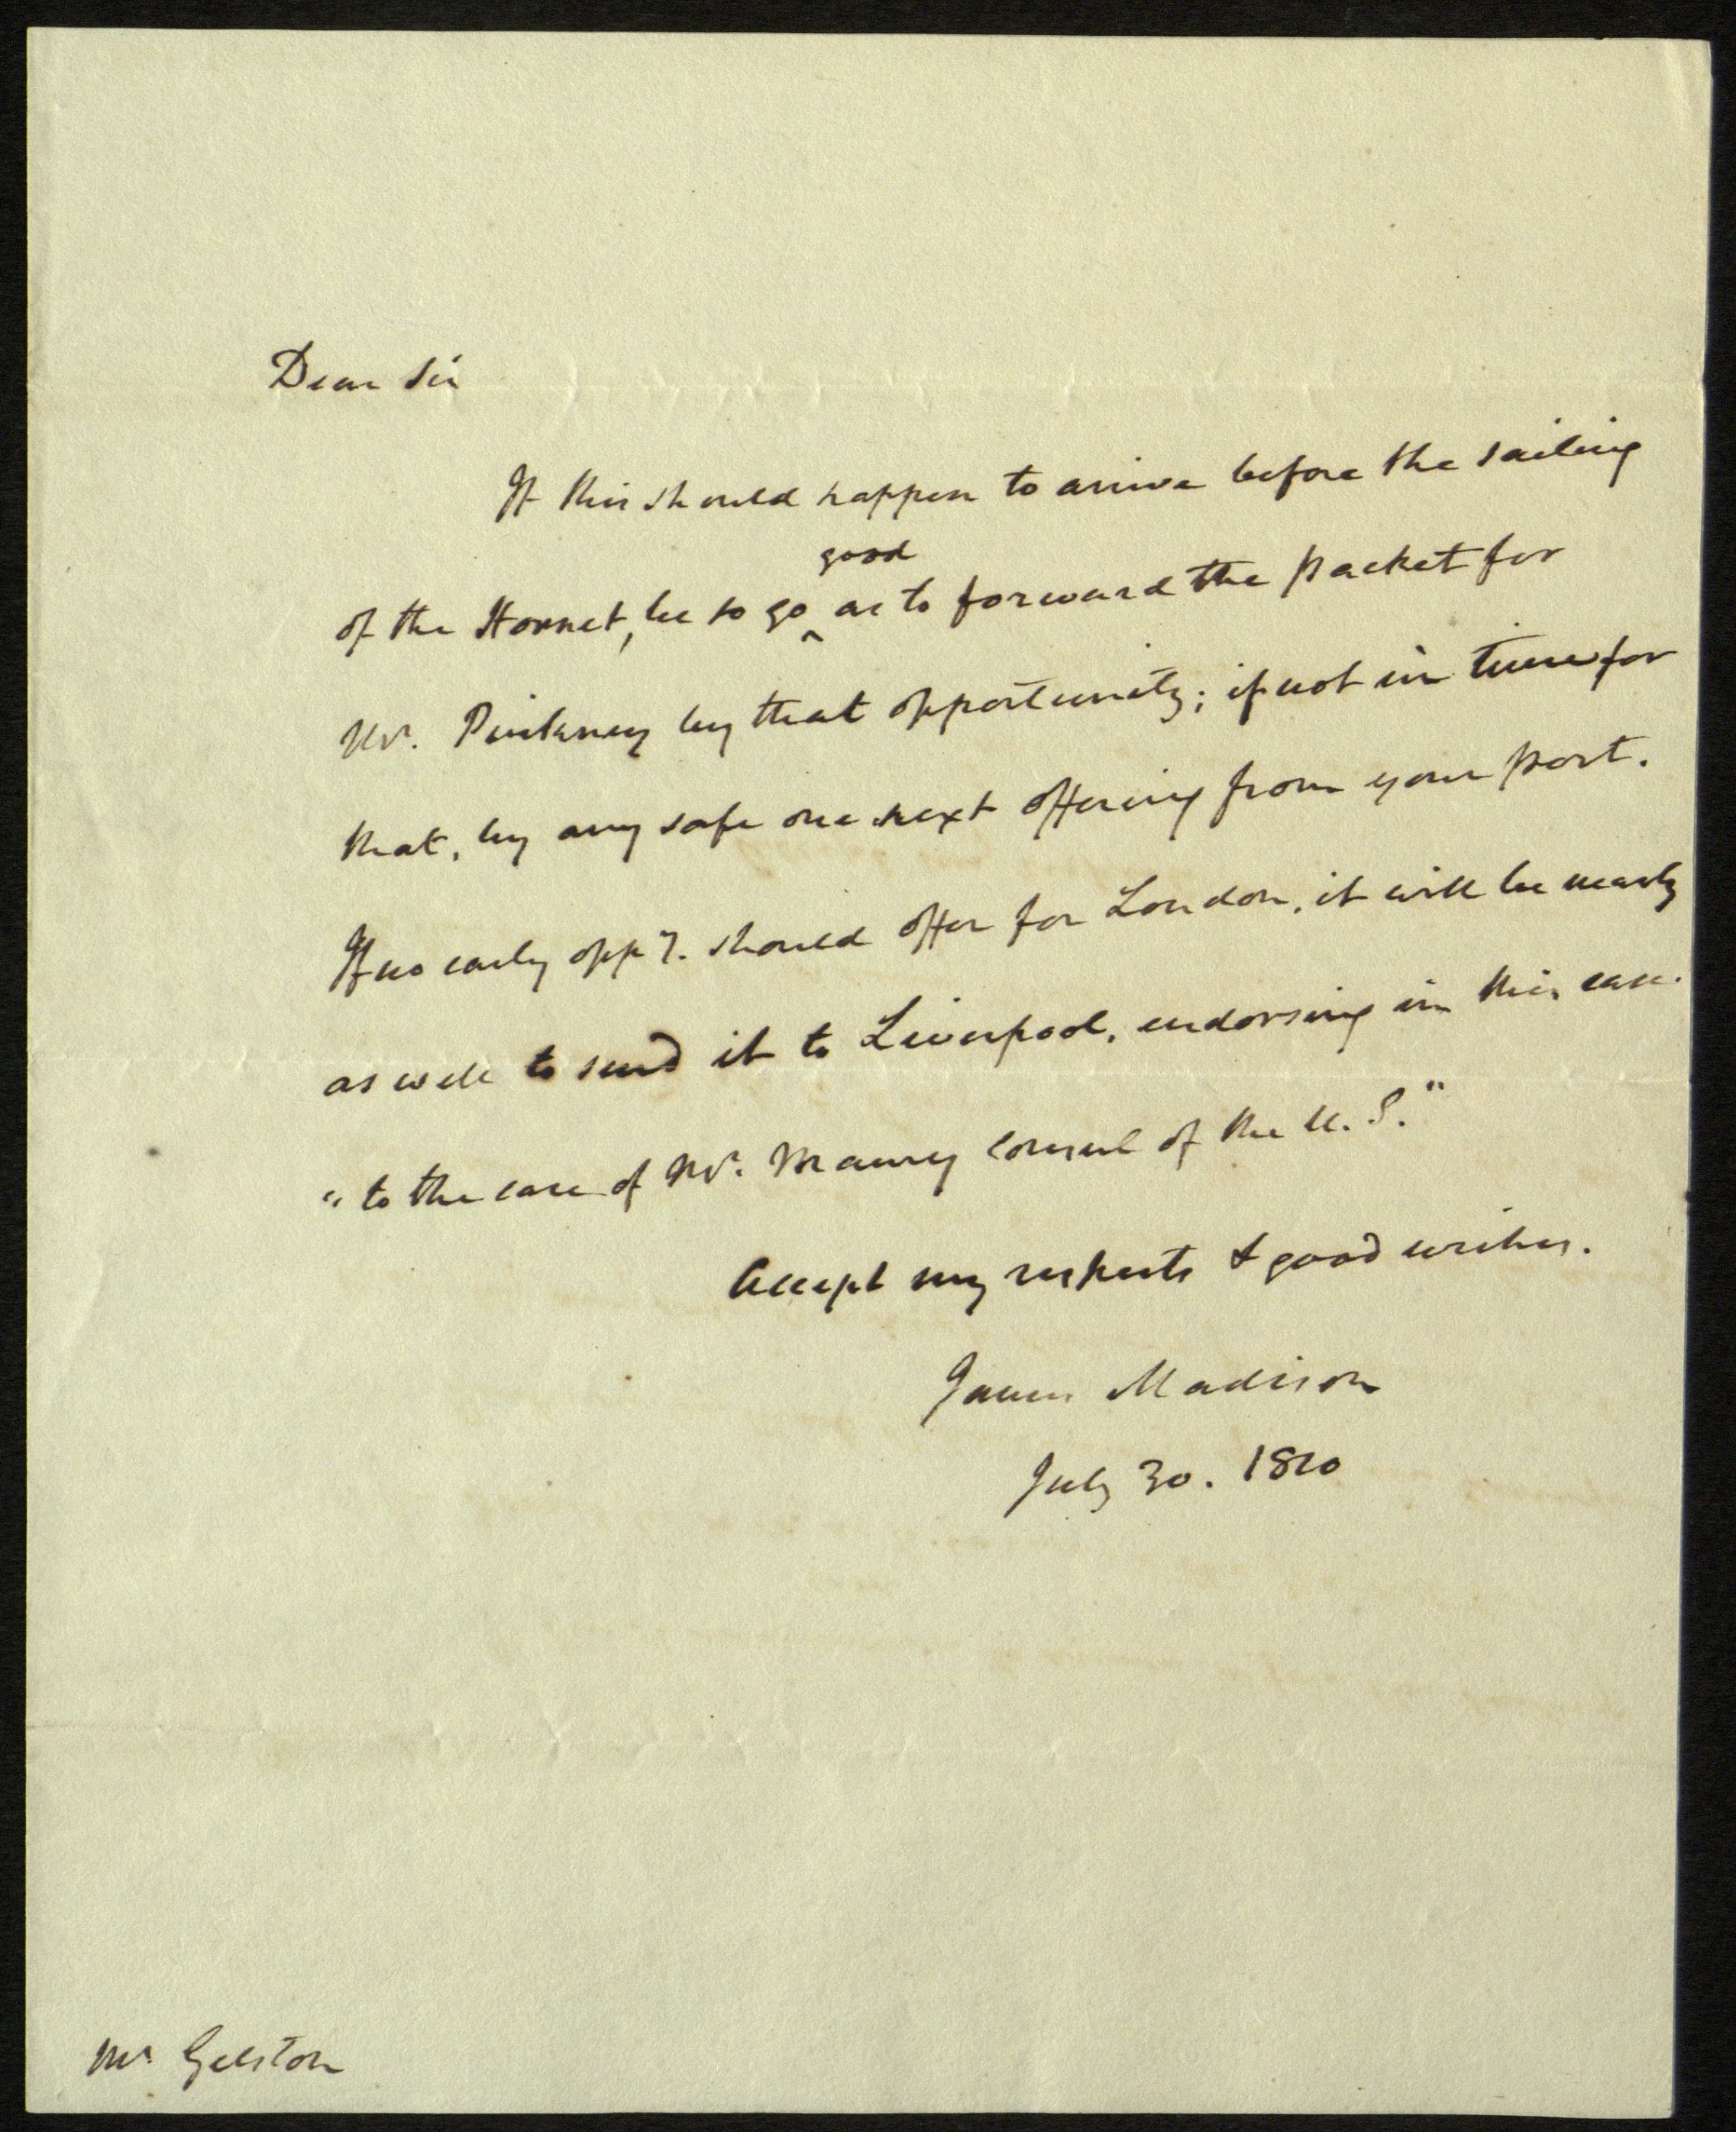 Dear Sir
If this should happen to arrive before the sailing
good
of the Hornet, be so go ^ as to forward the packet for
Mr. Pinkney by that opportunity; if not in time for
that, by any safe one next offering from your port.
If no early oppy. should offer for London, it will be nearly
as well to send it to Liverpool, endorsing in this case.
"to the care of Mr. Maury Consul of the U. S."
Accept my respects & good wishes.
James Madison
July 30. 1810
Mr Gelston